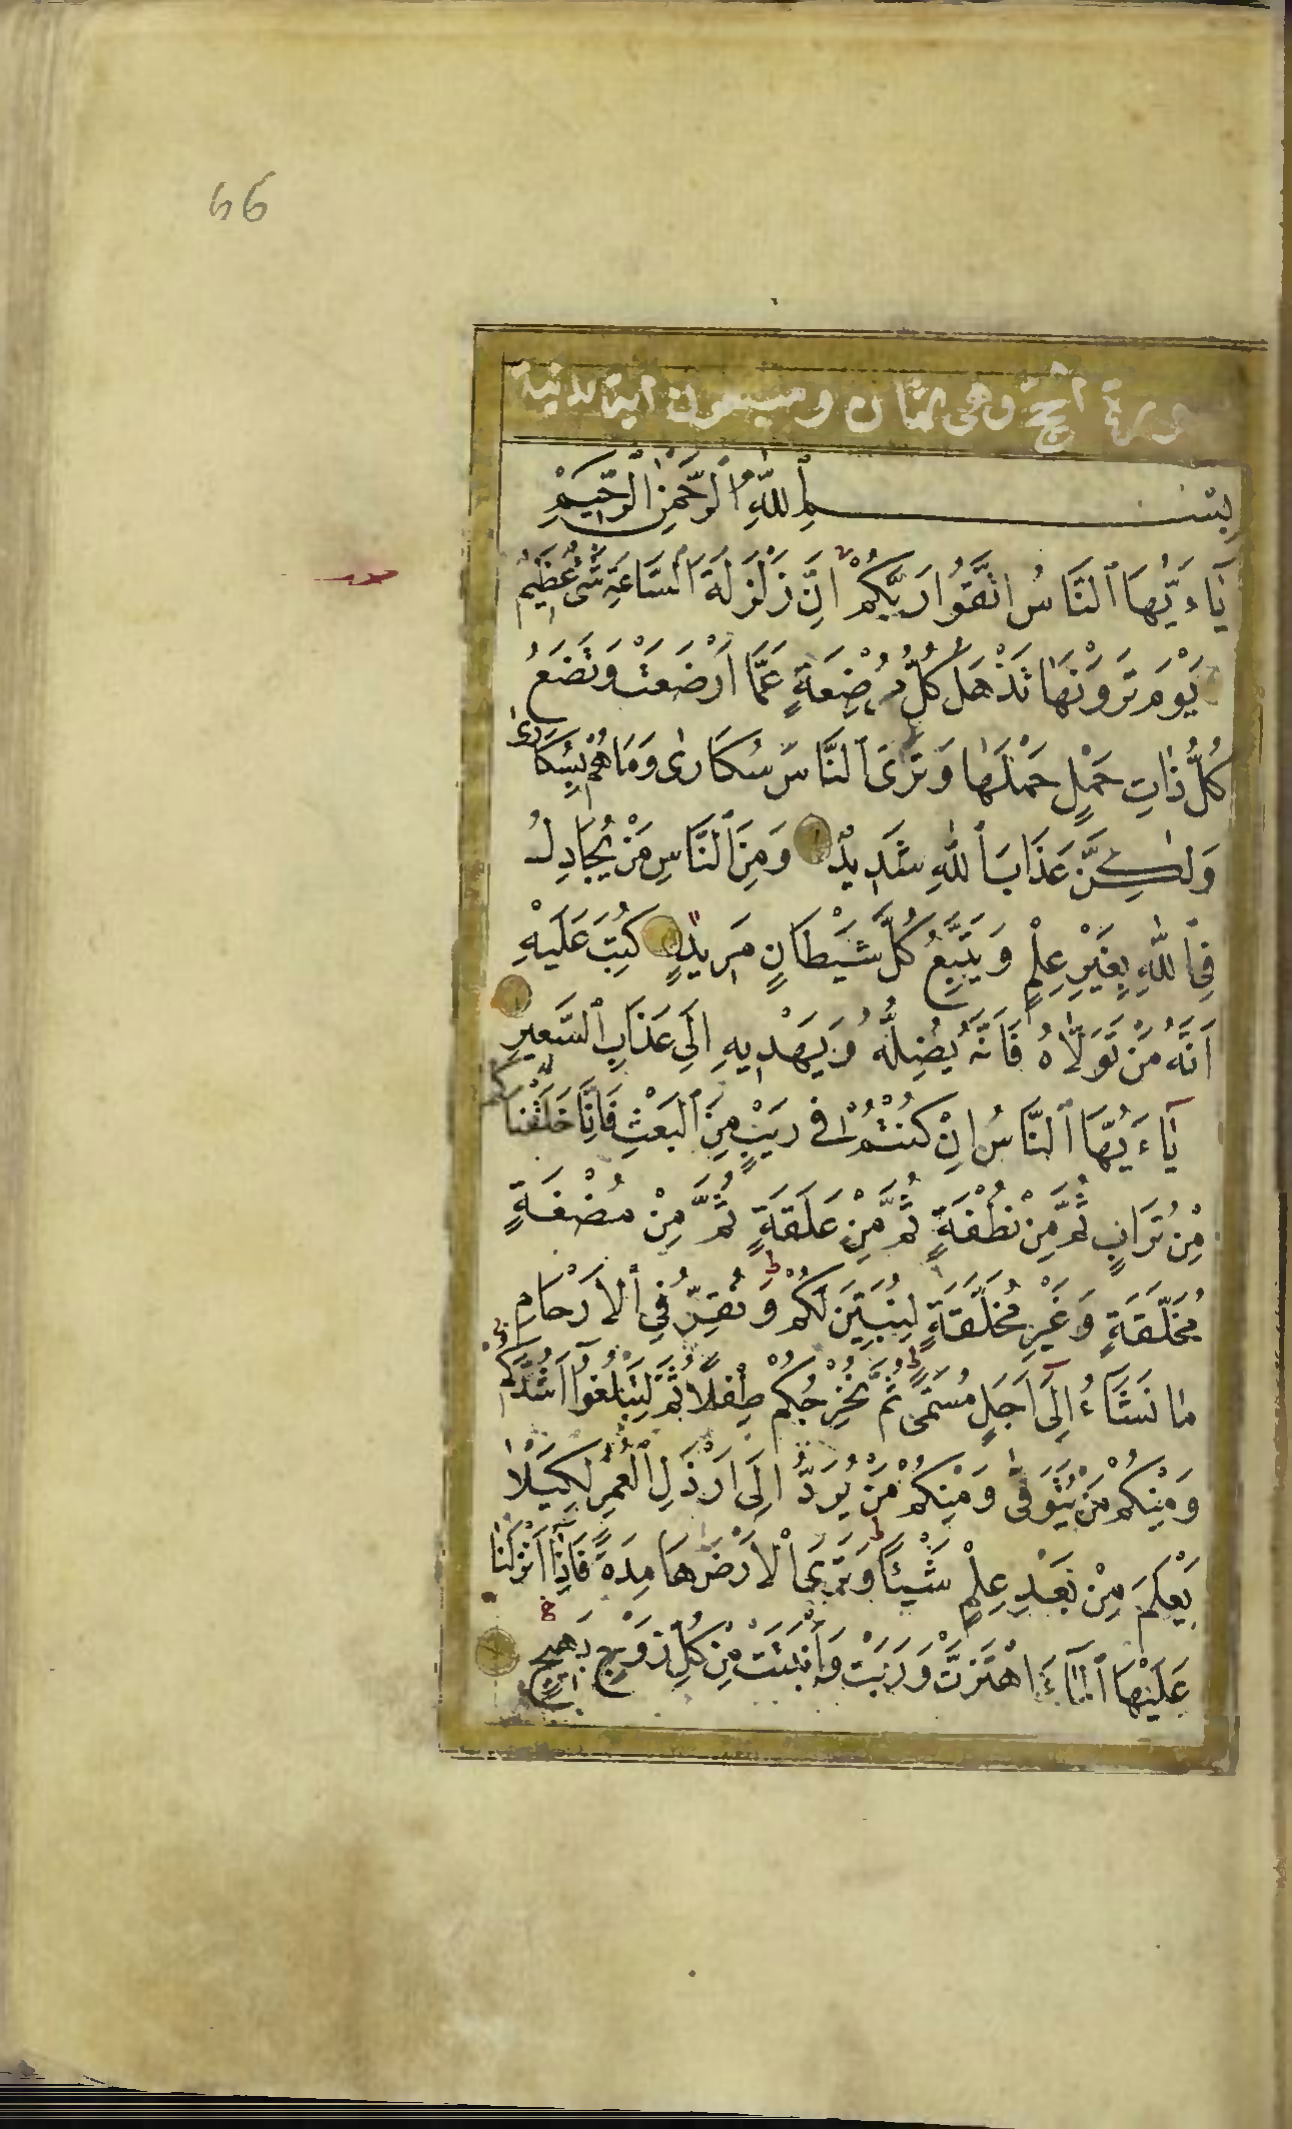 66
سورة الحج وهى ثمان وسبعون اية مدنية
بِسْمِ ٱللَّهِ ٱلرَّحْمٰنِ ٱلرَّحِيمِ
يَآءَيُّهَا ٱلنَّاسُ اتَّقُوا رَبَّكُمْ اِنَّ زَلْزَلَةَ ٱلسَّاعَةِ شَىْءٌ عَظِيمٌ
يَوْمَ تَرَوْنَهَا تَذْهَلُ كُلُّ مُرْضِعَةٍ عَمَّا اَرْضَعَتْ وَتَضَعُ
كُلُّ ذَاتِ حَمْلٍ حَمْلَهَا وَتَرَى ٱلنَّاسَ سُكَارٰى وَمَا هُمْ بِسُكَارٰى
وَلٰكِنَّ عَذَابَ ٱللّٰهِ شَدِيدٌ وَمِنَ ٱلنَّاسِ مَنْ يُجَادِلُ
فِى ٱللّٰهِ بِغَيْرِ عِلْمٍ وَيَتَّبِعُ كُلَّ شَيْطَانٍ مَرِيدٍ كُتِبَ عَلَيْهِ
اَنَّهُ مَنْ تَوَلَّاهُ فَاَنَّهُ يُضِلُّهُ وَيَهْدِيهِ اِلَى عَذَابِ ٱلسَّعِيرِ
يَآءَيُّهَا ٱلنَّاسُ اِنْ كُنْتُمْ فِى رَيْبٍ مِنَ ٱلْبَعْثِ فَاِنَّا خَلَقْنَاكُمْ
مِنْ تُرَابٍ ثُمَّ مِنْ نُطْفَةٍ ثُمَّ مِنْ عَلَقَةٍ ثُمَّ مِنْ مُضْغَةٍ
مُخَلَّقَةٍ وَغَيْرِ مُخَلَّقَةٍ لِنُبَيِّنَ لَكُمْ وَنُقِرُّ فِى ٱلْاَرْحَامِ
مَا نَشَآءُ اِلَى اَجَلٍ مُسَمًّى ثُمَّ نُخْرِجُكُمْ طِفْلًا ثُمَّ لِتَبْلُغُوٓا اَشُدَّكُمْ
وَمِنْكُمْ مَنْ يُتَوَفّٰى وَمِنْكُمْ مَنْ يُرَدُّ اِلَى اَرْذَلِ ٱلْعُمُرِ لِكَيْلَا
يَعْلَمَ مِنْ بَعْدِ عِلْمٍ شَيْئًا وَتَرَى ٱلْاَرْضَ هَامِدَةً فَاِذَآ اَنْزَلْنَا
عَلَيْهَا ٱلْمَآءَ اهْتَزَّتْ وَرَبَتْ وَاَنْبَتَتْ مِنْ كُلِّ زَوْجٍ بَهِيجٍ